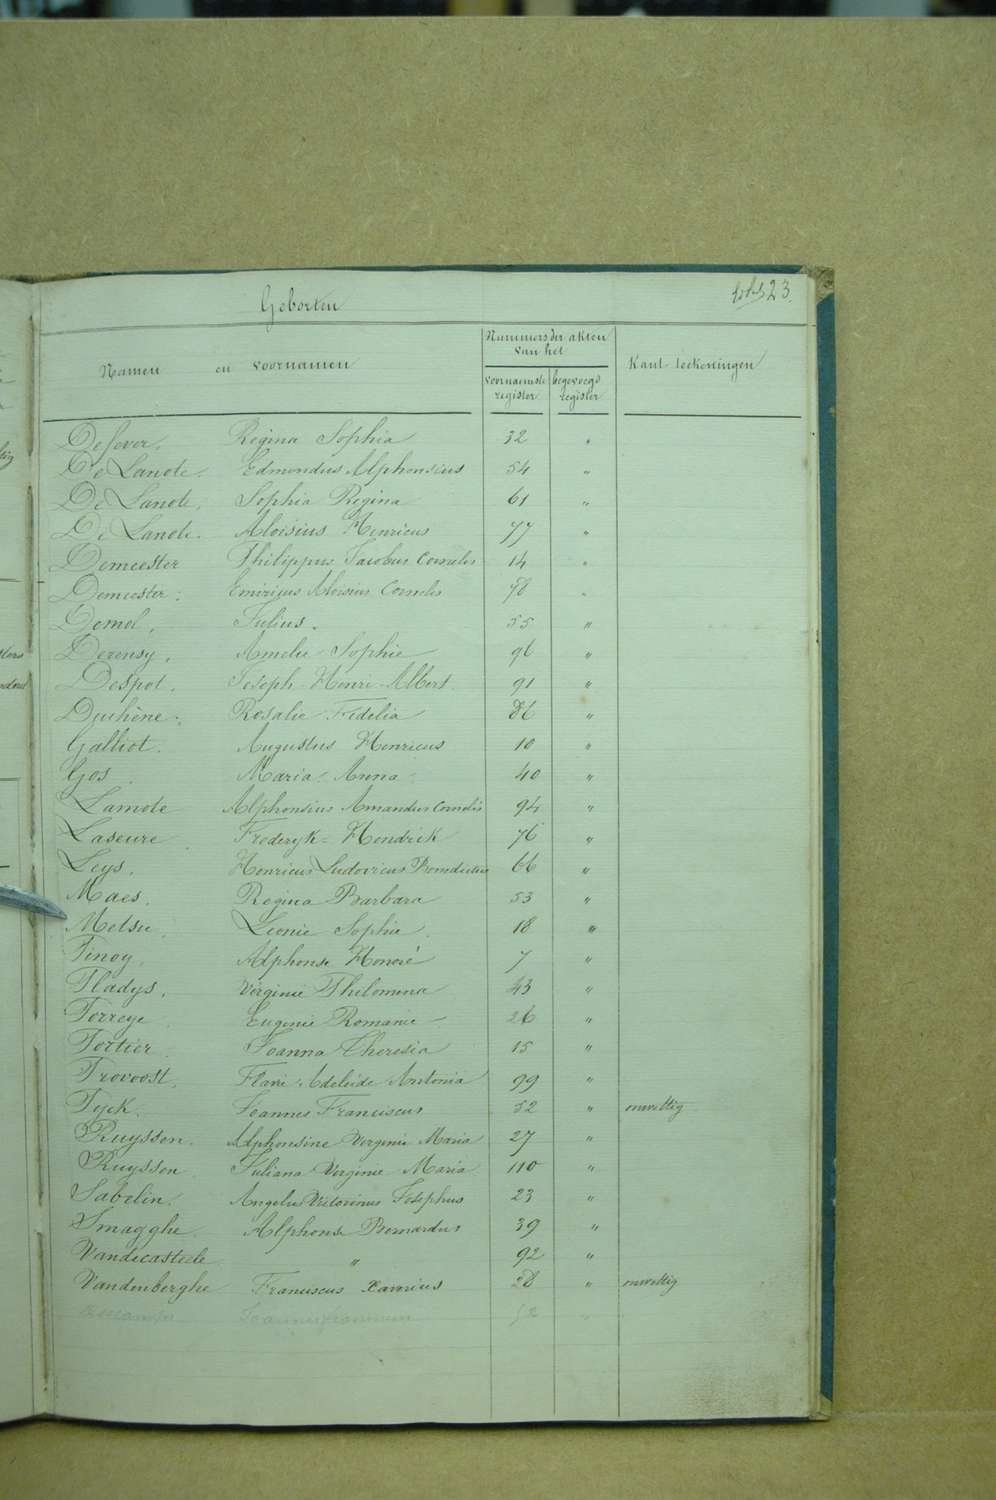 Geborten
23.
Nummers der akten
van het
Namen en voornamen
Kant teekeningen
voornaamste begevoegd
register register
Desever. Regina Sophia 32 "
De Lanote. Edmondus Alphonsius 54 "
De Lanote, Sophia Regina 61 "
De Lanote. Aloisius Henricus 77 "
Demeester Philippus Jacobus Cornelis 14 "
Demeester. Aloisius Cornelis 78 "
Demol, Julius. 55 "
Derensy, Amelie Sophie 96 "
Despot, Joseph-Henri-Albert. 91 "
Duchène. Rosalie Fidelia 86 "
Galliot. Augustus Henricus 10 "
Gos Maria-Anna 40 "
Lamote Alphonsius Amandus Cornelis 94 "
Laseure Frederyk=Hendrik 76 "
Leys. Henricus Ludovicus Benedictus 66 "
Maes. Regina Barbara 53 "
Metsu Leonie Sophie 18 "
Pinoy. Alphonse Honoré 7 "
Pladys. Virginie Philomena 43 "
Porreye Eugenie Romanie 26 "
Portier Joanna Theresia 15 "
Provoost. Flavie Adeleide Antonia 99 "
Pyck. Joannes Franciscus 52 " onwettig
Ruysson. Alphonsine Virginie Maria 27 "
Ruysson Juliana Virginie Maria 110 "
Sabelin. Angelus Victorinus Josephus 23 "
Smagghe Alphonse Bernardus 39 "
Vandecasteele " 92 "
Vandenberghe Franciscus Xaverius 28 " onwettig